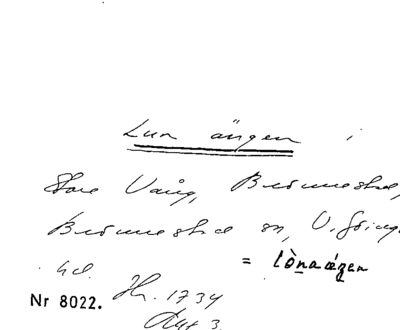 Lun ängen i
Store Vång, Brönnestad,
Brönnestad sn, V. Göinge
hd.
= lò̱naǽŋen
Nr 8022. Hr. 1734
Akt 3.